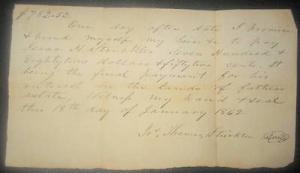 $782.52
One day after date I promise
& bind myself my heirs &c to pay
Isaac H. Strickler Seven Hundred &
Eighty two dollars & fifty two cents. It
being the final payment for his
interest in the Lands of fathers
estate. Witness my hand & seal
this 18th day of January 1862
Strickler Seal